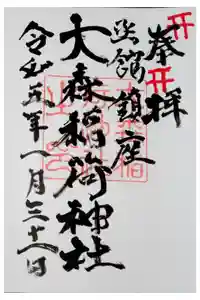 奉拝
函館鎮座
大森稲荷神社
令和五年一月三十一日